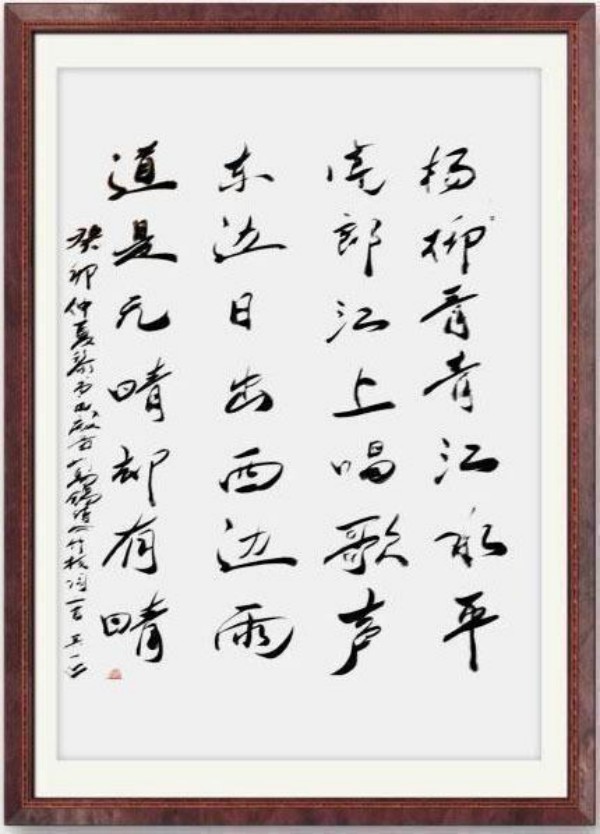 杨柳青青江水平
郎江上唱歌声
东边日出西边雨
道是无晴却有晴
癸卯仲夏 刘禹锡 竹枝词一首